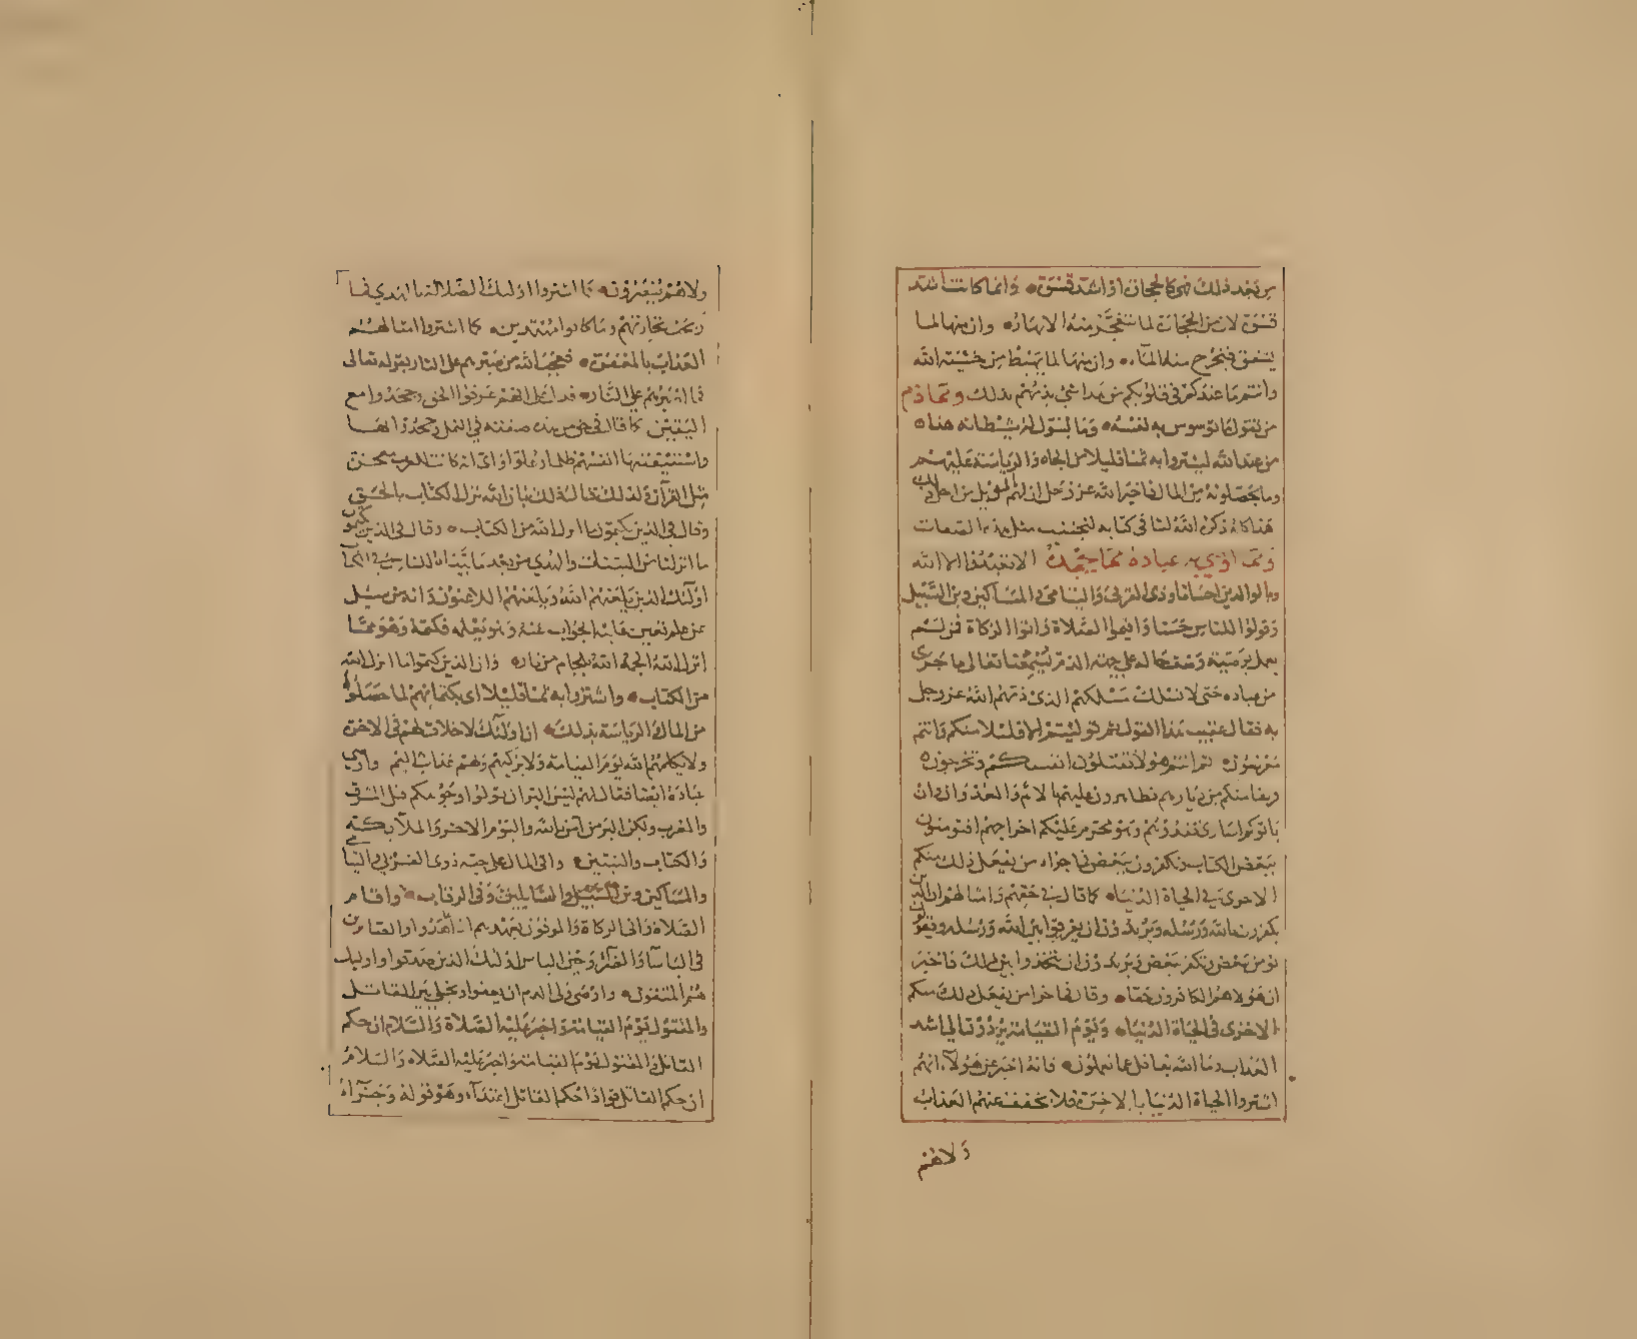 من بعد ذلك فهي كالحجارة او اشد قسوة وانما كانت اشد
قسوة لان من الحجارة لما يتفجر منه الانهار وان منها لما
يشقق فيخرج منه الماء وان منها لما يهبط من خشية الله
وانتم ما عندكم في قلوبكم من هذا شيء يذمهم بذلك ومما ذم
من يقول ما توسوس به نفسه وما يسول له شيطانه هذا
من عند الله ليشتروا به ثمنا قليلا من الجاه والرياسة عليهم
وما يحصلونه من المال فاخبر الله عز وجل ان لهم الويل من اجل ذلك
هذا كله ذكره الله لنا في كتابه لنجتنب مثل هذه الصفات
ومما اوصي به عباده الا تعبدوا الا الله
وبالوالدين احسانا وذي القربى واليتامى والمساكين وبن السبيل
وقولوا للناس حسنا واقيموا الصلاة واتوا الزكاة فمن لم
الذم ليسمعنا تعالى ما جرى
من عباده حتى لا نسلك مسلكهم الذي ذمهم الله عز وجل
به فقال عقيب هذا القول ثم توليتم الا قليلا منكم وانتم
معرضون ثم انتم هولا تقتلون انفسكم وتخرجون
فريقا منكم من ديارهم تظاهرون عليهم بالاثم والعدوان وان
ياتوكم اسارى تفدوهم وهو محرم عليكم اخراجهم افتومنون
ببعض الكتاب وتكفرون ببعض فما جزاء من يفعل ذلك منكم
الا خزي في الحياة الدنيا كما قال في حقهم وامثالهم ان الذين
يكفرون بالله ورسله ويريدون ان يفرقوا بين الله ورسله ويقولون
نومن ببعض ونكفر ببعض ويريدون ان يتخذوا بين ذلك فاخبر
ان هولا هم الكافرون حقا وقال فما جزا من يفعل ذلك منكم
الا خزي في الحياة الدنيا ويوم القيامة يردون الى اشد
العذاب وما الله بغافل عما تعملون فانه اخبر عن هولاء انهم
اشتروا الحياة الدنيا بالاخرة فلا يخفف عنهم العذاب
ولا هم
ولا هم ينصرون اشتروا اوليك الضلالة بالهدي فما
ربحت تجارتهم وما كانوا مهتدين كما اشتروا امثالهم
العذاب بالمغفرة فعجب الله من صبرهم على النار بقوله تعالى
فما اصبرهم على النار فدل على انهم عرفوا الحق وجحدوا مع
اليقين كما قال في حق من هذه صفته في النمل وجحدوا بها
واستيقنتها انفسهم ظلما وعلوا
ذلك بان الله نزل الكتاب بالحق
وقال في الذين يكتمون ما انزل الله من الكتاب وقال في الذين يكتمون
ما انزلنا من البينات والهدي من بعد ما بيناه للناس في الكتاب
اولئك الذين يلعنهم الله ويلعنهم اللاعنون وانه من سيل
عن علم تعين عليه الجواب عنه وهو يعلمه فكتمه وهو مما
انزل الله الجمه الله بلجام من نار وان الذين يكتمون ما انزل الله
من الكتاب واشتروا به ثمنا قليلا اي بكتمانهم لما حصلوه
من المال والرياسة بذلك ان اولئك لا خلاق لهم في الاخرة
ولا يكلمهم الله يوم القيامة ولا يزكيهم ولهم عذاب اليم واوصى
عباده ايضا فقال لهم ليس البر ان تولوا وجوهكم قبل المشرق
والمغرب ولكن البر من آمن بالله واليوم الاخر والملآيكة
والكتاب والنبيين واتى المال على حبه ذوى القربى واليتامى
والمساكين وبن السبيل والسايلين وفي الرقاب واقام
الصلاة واتى الزكاة والموفون بعهدهم اذا عهدوا والصابرين
في الباسآ والضرآ وحين الباس اوليك الذين صدقوا واوليك
هم المتقون
والمقتول يوم القيامة واخبر عليه الصلاة والسلام ان حكم
القاتل والمقتول يوم القيامة واخبر عليه الصلاة والسلام